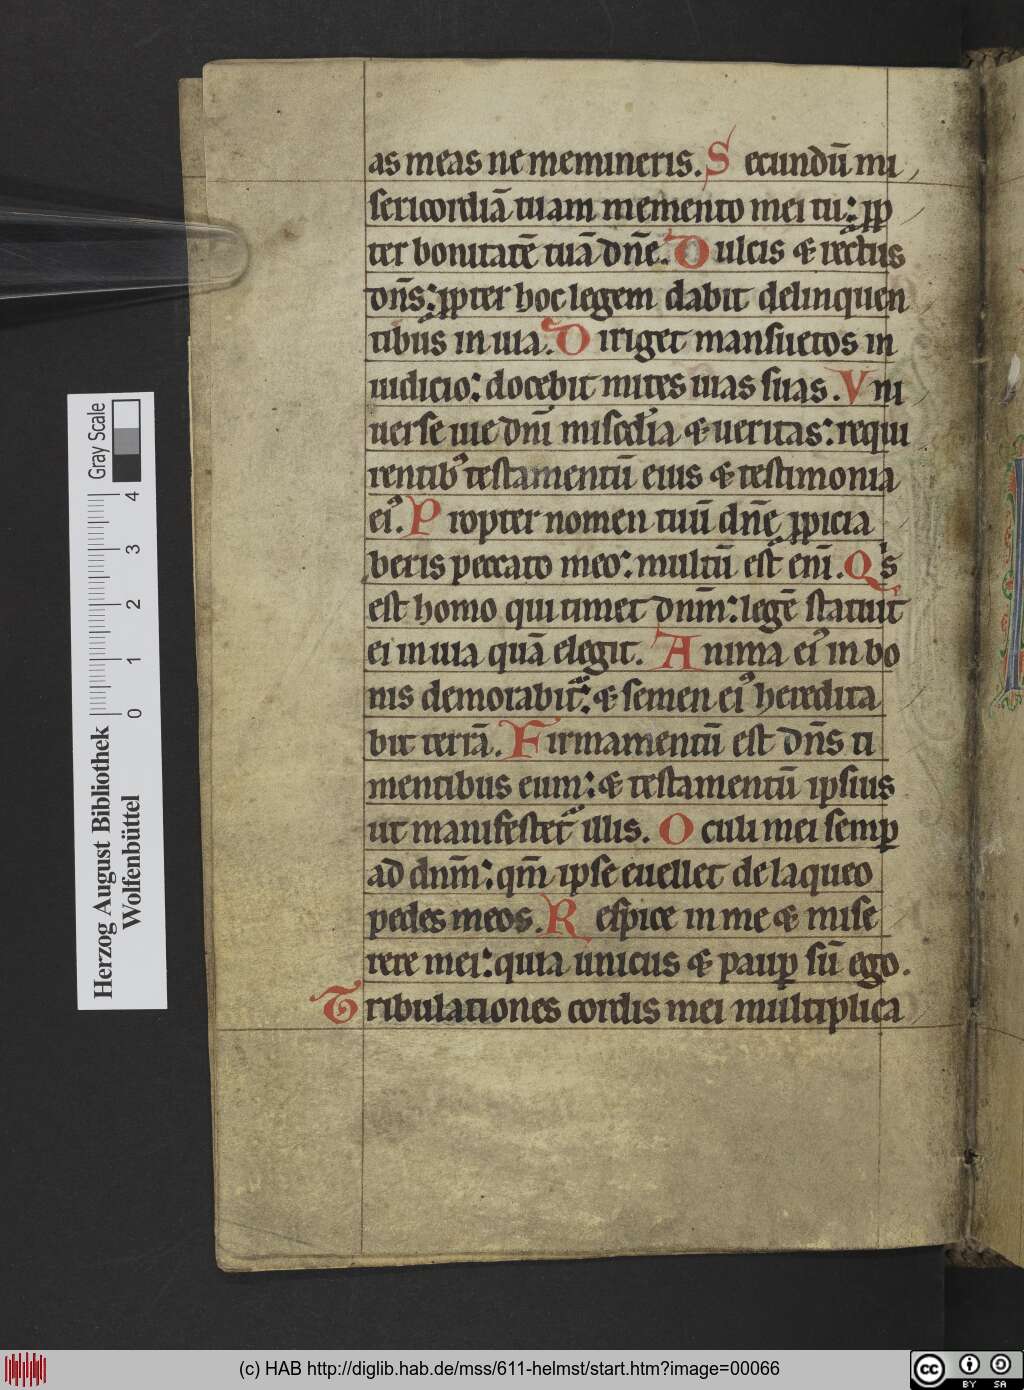 as meas ne memineris. S ecundū mi
sericordiā tuam memento mei tu: ꝓp
ter bonitatē tuā dn̄e. D ulcis & rectus
dn̄s: ꝓpter hoc legem dabit delinquen
tibus in uia. D iriget mansuetos in
iudicio: docebit mites uias suas. V ni
uerse uie dn̄i misc̄dia & ueritas: requi
rentibꝰ testamentū eius & testimonia
eiꝰ. P ropter nomen tuū dn̄e ꝓpicia
beris peccato meo: multū est enī. Qⁱs
est homo qui timet dnm̄: legē statuit
ei in uia quā elegit. A nima eiꝰ in bo
nis demorabit̄: & semen eiꝰ heredita
bit terrā. F irmamentū est dn̄s ti
mentibus eum: & testamentū ipsius
ut manifestet̄ illis. O culi mei semꝑ
ad dnm̄: qm̄ ipse euellet de laqueo
pedes meos. R espice in me & mise
rere mei: quia unicus & pauꝑ sū ego.
T ribulationes cordis mei multiplica
Gray Scale
0 1 2 3 4
Herzog August Bibliothek
Wolfenbüttel
(c) HAB http://diglib.hab.de/mss/611-helmst/start.htm?image=00066
cc BY SA